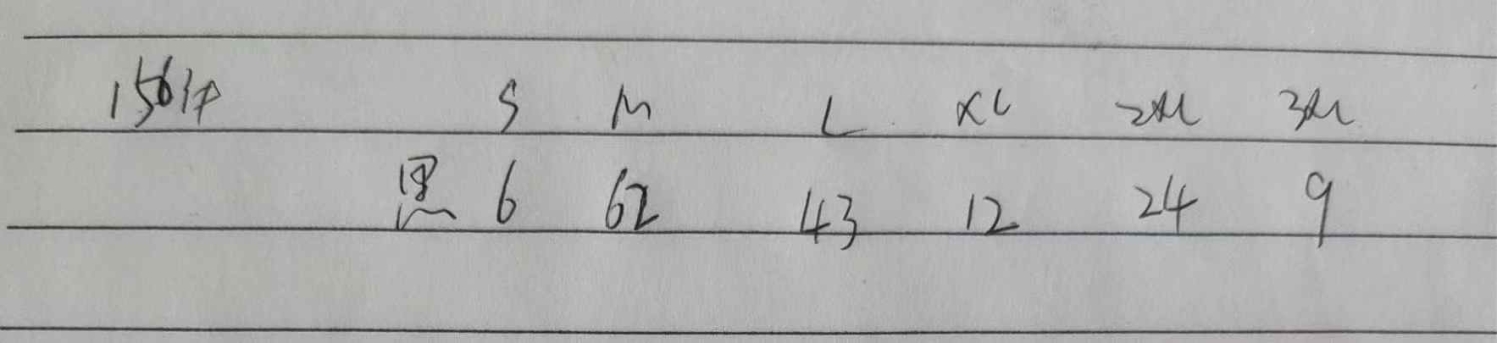 156件 S M L XL 2XL 3XL
黑 6 62 43 12 24 9